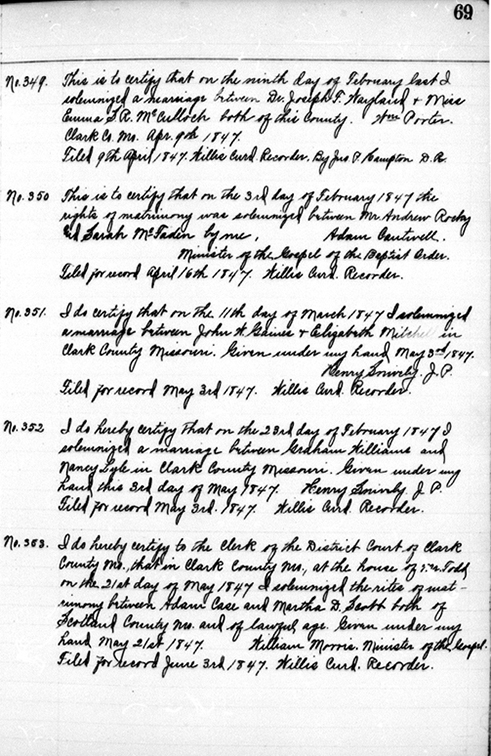 69
No. 349. This is to certify that on the ninth day of February last I
solemnized a marriage between Dr. Joseph F. Wayland & Miss
Emma S. R. McCulloch both of this County. Wm Porter.
Clark Co. Mo. Apr. 9th 1847.
Filed 9th April 1847. Willis Curd Recorder. By Jas P. Hampton D.R.
No. 350 This is to certify that on the 3rd day of February 1847 the
rights of matrimony was solemnized between Mr. Andrew Rosby
and Sarah McFadin by me, Adam Cantwell.
Minister of the Gospel of the Baptist Order.
Filed for record April 16th 1847. Willis Curd. Recorder.
No. 351. I do certify that on the 11th day of March 1847 I solemnized
a marriage between John W. Gaines & Elizabeth Mitchell in
Clark County Missouri. Given under my hand May 3rd 1847.
Henry Snively J.P.
Filed for record May 3rd 1847. Willis Curd. Recorder.
No. 352 I do hereby certify that on the 23rd day of February 1847 I
solemnized a marriage between Graham Williams and
Nancy Lyle in Clark County Missouri. Given under my
hand this 3rd day of May 1847. Henry Snively J. P.
Filed for record May 3rd. 1847. Willis Curd. Recorder.
No. 353. I do hereby certify to the Clerk of the District Court of Clark
County Mo., that in Clark County Mo., at the house of Todd
on the 21st day of May 1847 I solemnized the rites of mat-
rimony between Adam Case and Martha D. Scott both of
Scotland County Mo. and of lawful age. Given under my
hand May 21st 1847. William Morris. Minister of the Gospel.
Filed for record June 3rd 1847. Willis Curd. Recorder.